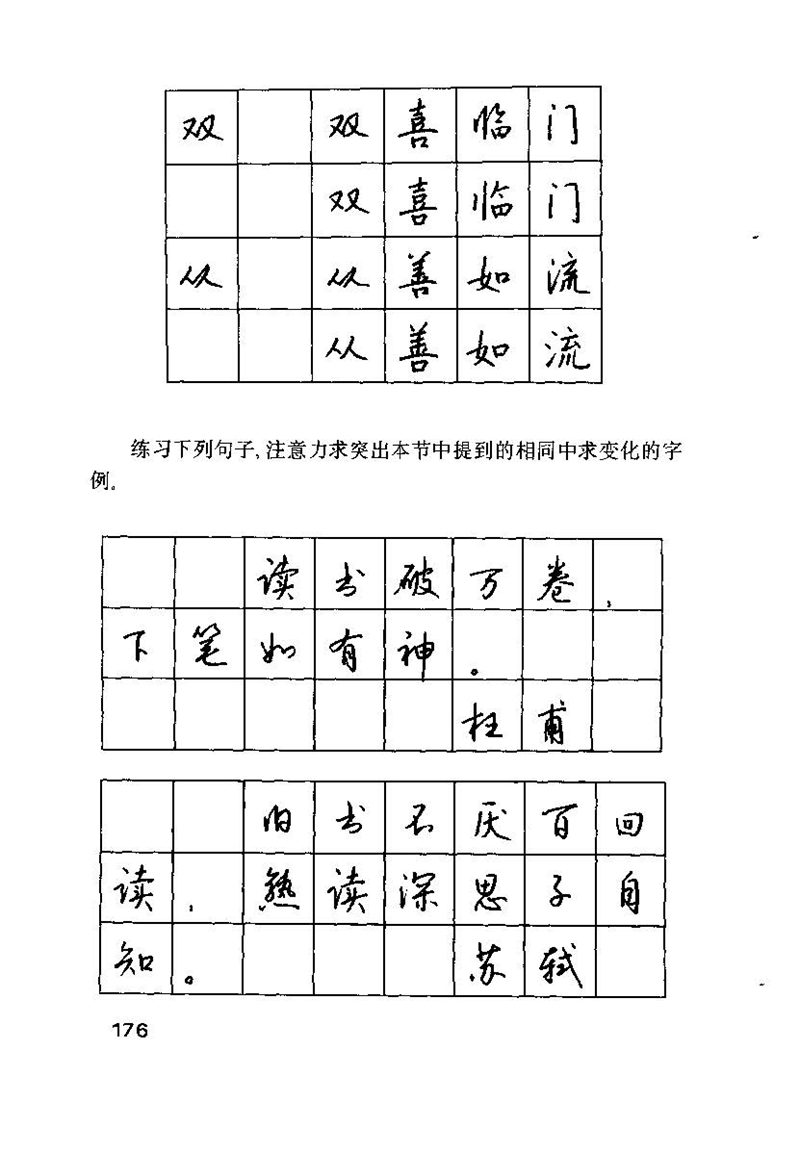 双 双喜临门
双喜临门
从 从善如流
从善如流
练习下列句子,注意力求突出本节中提到的相同中求变化的字
例。
读书破万卷,
下笔如有神。
杜甫
旧书不厌百回
读,熟读深思子自
知。
苏轼
176